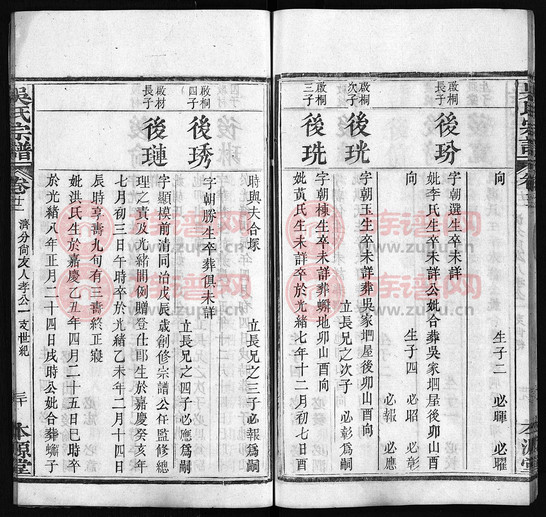 向
生子二 必暉 必曜
啟桐長子
後玢
字朝選生卒未詳葬吳家垇屋後卯山酉
妣李氏生卒未詳公妣合葬吳家垇屋後卯山酉
向
生子四 必昭 必彰
必報 必應
啟桐次子
後珖
字朝玉生卒未詳葬吳家垇屋後卯山酉向
立長兄之次子 必彰為嗣
啟桐三子
後珗
字朝棟生卒未詳葬地卯山酉向
妣黃氏生未詳卒於光緒七年十二月初七日酉
時與夫合塚
立長兄之三子 必報為嗣
啟桐四子
後琇
字朝勝生卒葬俱未詳
立長兄之四子 必應為嗣
啟材長子
後璉
字顯模前清同治戊辰歲創修宗譜公任監修總
理之責及光緒間例贈登仕郎生於嘉慶癸亥年
七月初三日午時卒於光緒乙未年二月十四日
辰時享壽九旬有三壽終正寢
妣洪氏生於嘉慶乙丑年四月二十五日巳時卒
於光緒八年正月二十四日戌時公妣合葬螄子
吳氏宗譜
卷廿二
濟分尚友人孝公一支世紀
三十
本源堂
东谱网
www.zupu.cn